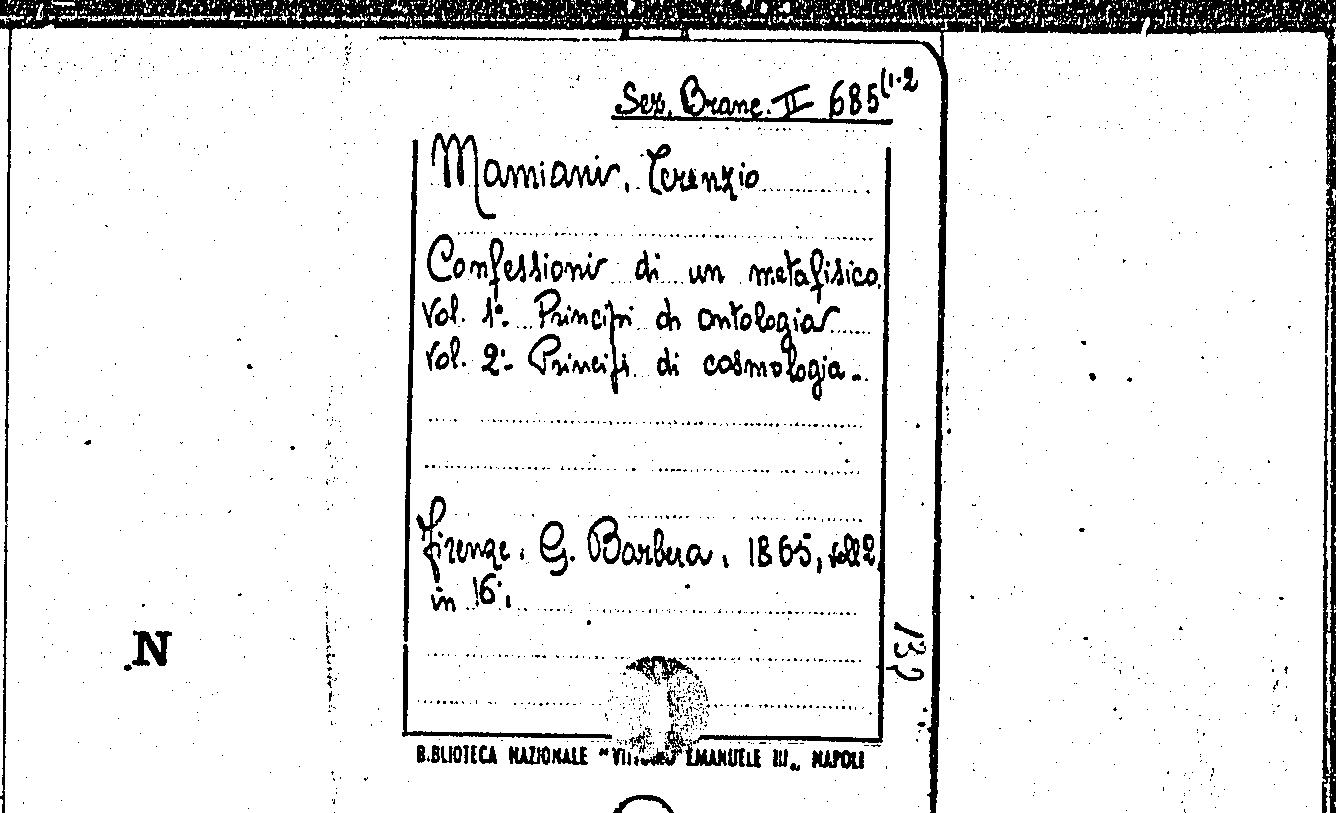 Sez. Branc. II 685(1-2
Mamiani, Terenzio
Confessioni di un metafisico.
Vol. 1º. Principi di ontologia
Vol. 2º. Principi di cosmologia.
Firenze, G. Barbera, 1865, voll 2,
in 16º.
132
N
BIBLIOTECA NAZIONALE "VITTORIO EMANUELE III„ NAPOLI